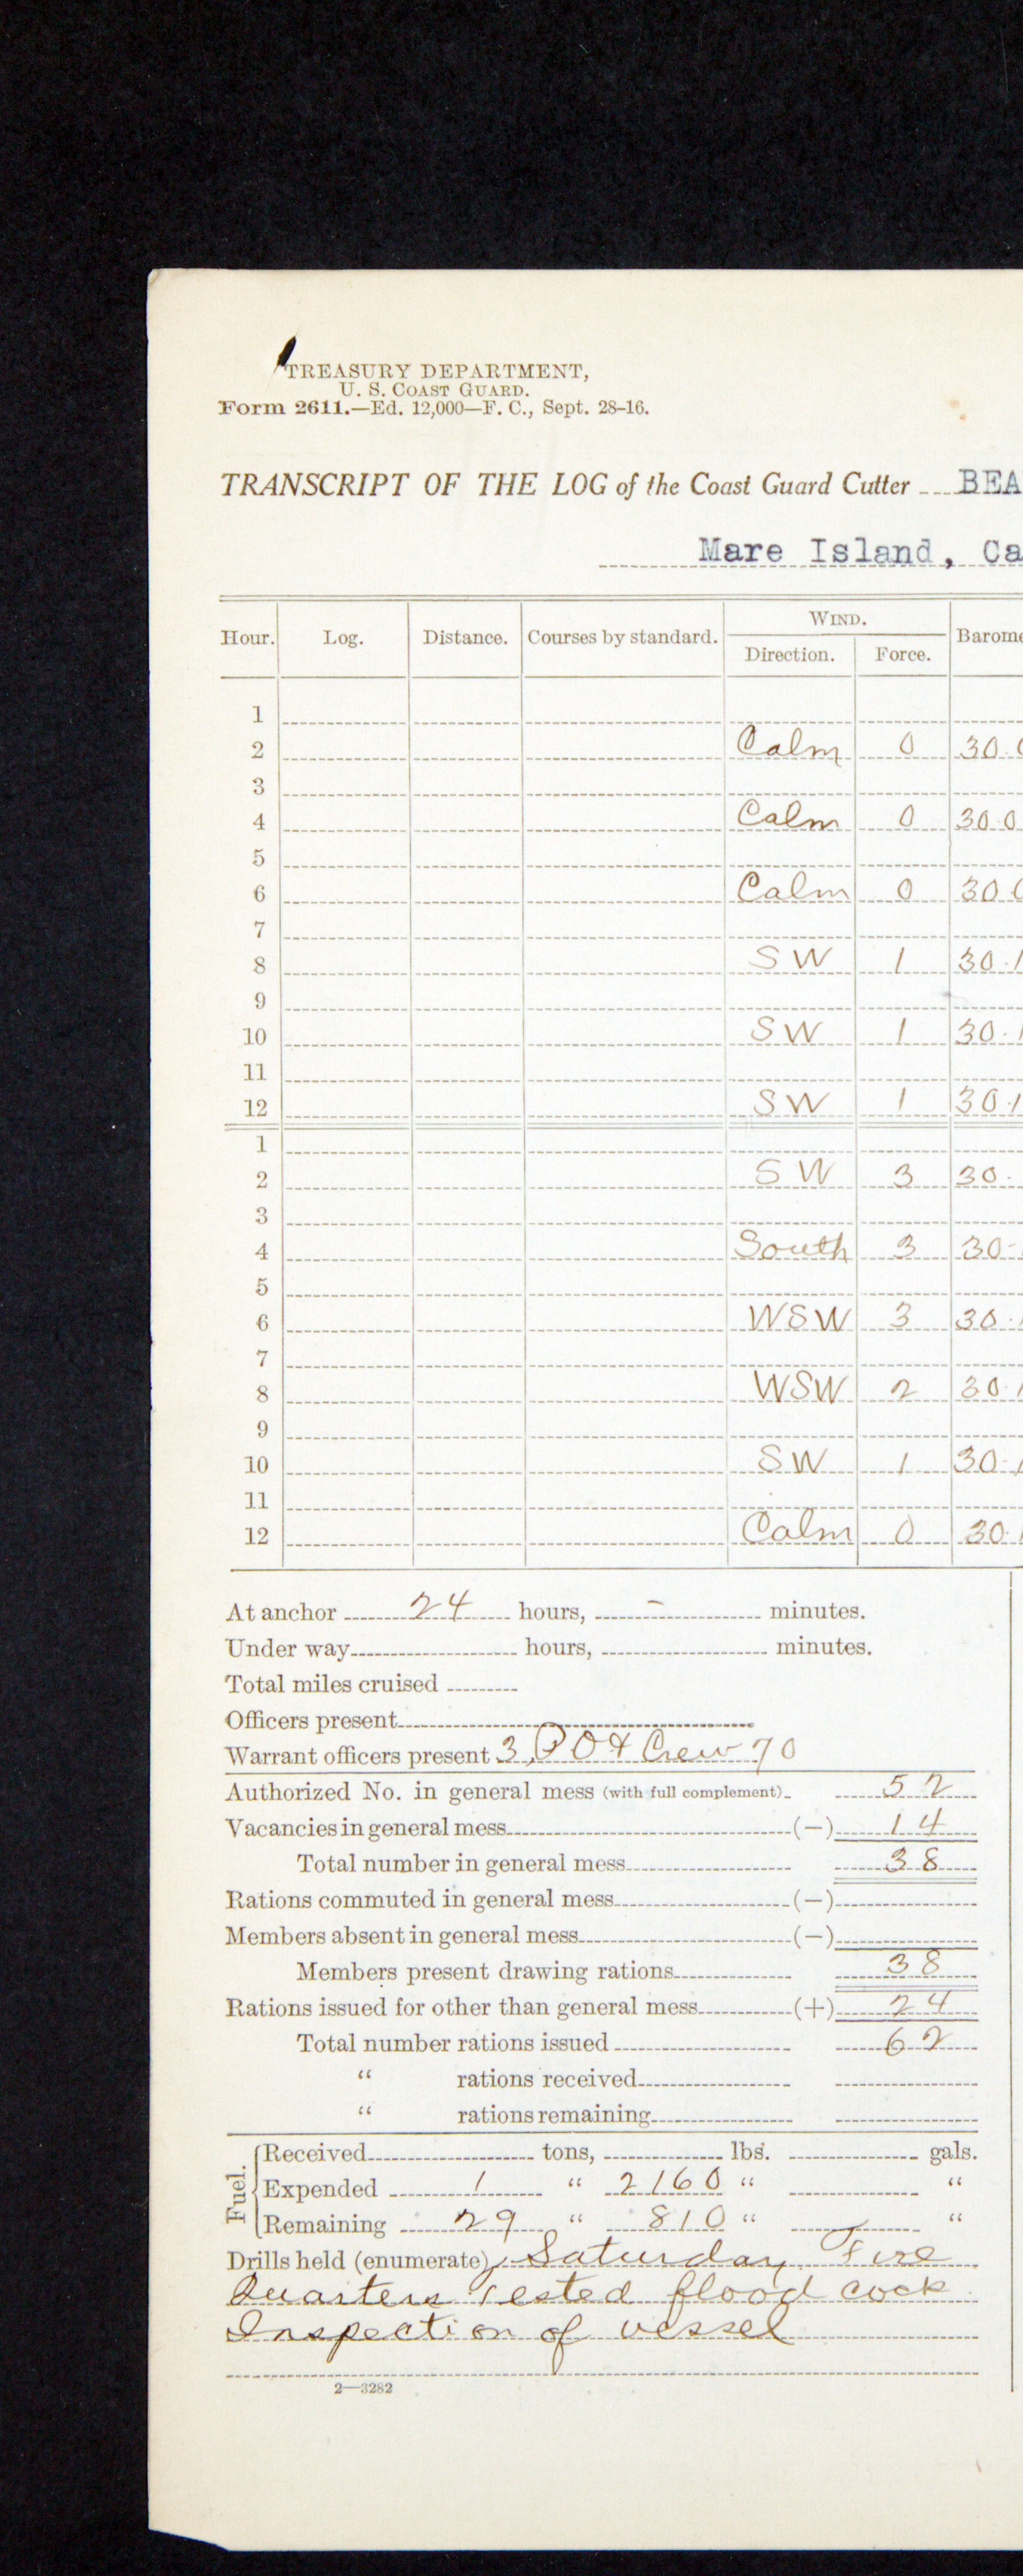 TREASURY DEPARTMENT,
U. S. COAST GUARD.
Form 2611.—Ed. 12,000—F. C., Sept. 28-16.
TRANSCRIPT OF THE LOG of the Coast Guard Cutter BEA
Mare Island, Ca
Hour. Log. Distance. Courses by standard. WIND. Barome
Direction. Force.
1
2 Calm 0 30.0
3
4 Calm 0 30.0
5
6 Calm 0 30.0
7
8 SW 1 30.1
9
10 SW 1 30.1
11
12 SW 1 30.1
1
2 SW 3 30.
3
4 South 3 30.
5
6 WSW 3 30.1
7
8 WSW 2 30.1
9
10 SW 1 30.1
11
12 Calm 0 30.1
At anchor 24 hours, - minutes.
Under way hours, minutes.
Total miles cruised
Officers present
Warrant officers present 3, P O & Crew 70
Authorized No. in general mess (with full complement) 52
Vacancies in general mess (—) 14
Total number in general mess 38
Rations commuted in general mess (—)
Members absent in general mess (—)
Members present drawing rations 38
Rations issued for other than general mess (+) 24
Total number rations issued 62
“ rations received
“ rations remaining
Fuel. Received tons, lbs. gals.
Expended 1 “ 2160 “ “
Remaining 29 “ 810 “ “
Drills held (enumerate), Saturday Fire
Quarters Tested flood cock
Inspection of vessel
2—3282